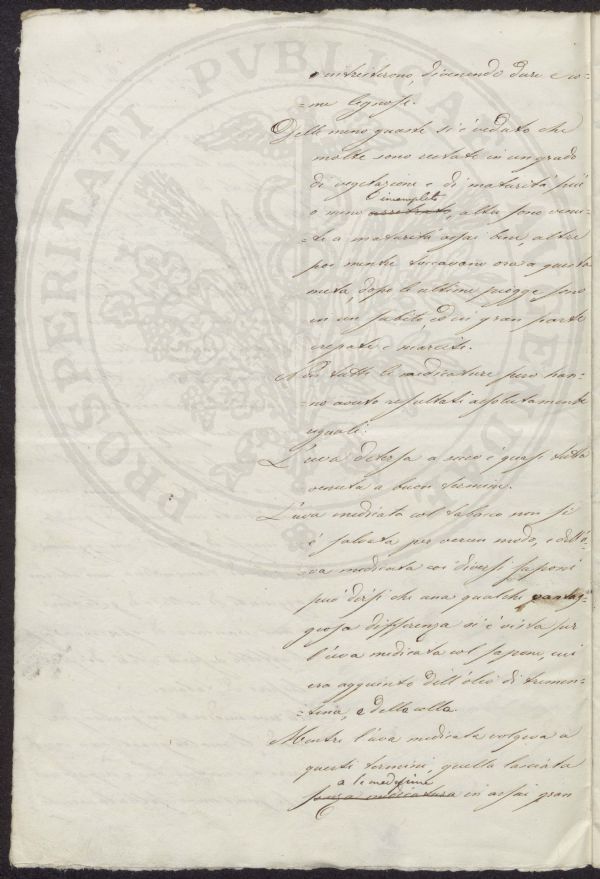 intristirono, divenendo dure e co-
-me legnose.
Dell meno guaste si è veduto che
molte sono restate in un grado
di vegetazione e di maturità più
incompleto
o meno arretrato, altre sono venu-
-te a maturità assai bene, altre
poi mentre toccavano ora a questa
meta, dopo le ultime piogge sono
in un subito ed in gran parte
crepate e marcite.
Non tutte le medicature però han-
-no avuto resultati assolutamente
uguali.
L'uva detersa a secco è quasi tutta
venuta a buon termine.
L'uva medicata col tabacco non si
è salvata per verun modo, e dell'u-
va medicata coi diversi saponi
può dirsi che una qualche vantag-
giosa differenza si è vista per
l'uva medicata col sapone, cui
era aggiunto dell'olio di tremen-
-tina, e della colla.
Mentre l'uva medicata volgeva a
questi termini quella lasciata
a se medesima
senza medicatura in assai gran
PROSPERITATI PVBLICAE